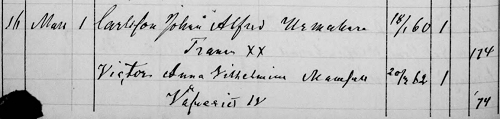 16 Mars 1 Carlsson Johan Alfred Urmakare 18/1 60 1
Tranås XX 174
Victor Anna Vilhelmina Mamsell 20/2 62 1
IV '74